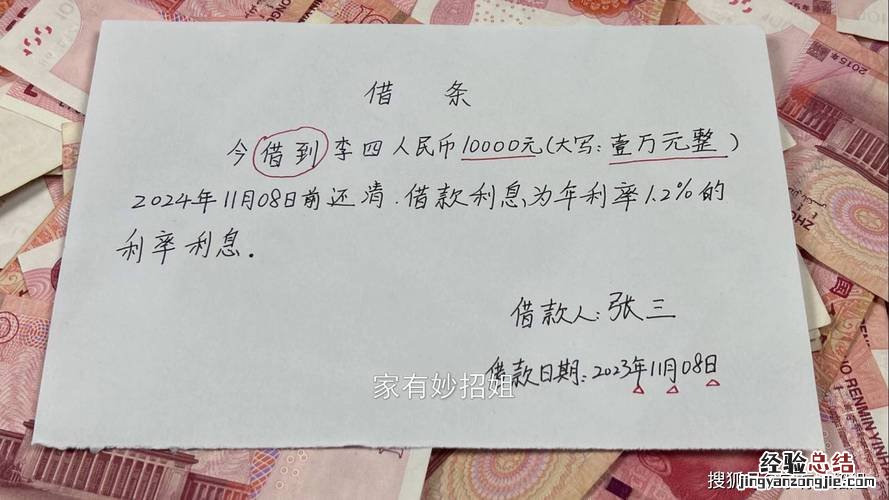 借 条
今借到李四人民币10000元(大写:壹万元整)
2024年11月08日前还清.借款利息为年利率1.2%的
利率利息.
借款人:张三
借款日期:2023年11月08日
家有妙招姐
搜狐
经验总结
jingyanzongjie.com
2015年